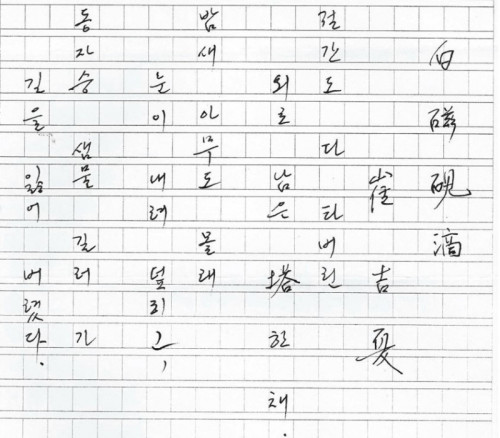 白磁硯滴
崔吉夏
절간도 다 타버린
외로 남은 塔 한 채.
밤새 아무도 몰래
눈이 내려 덮히고,
동자승 샘물 길러 가
길을 잃어버렸다.